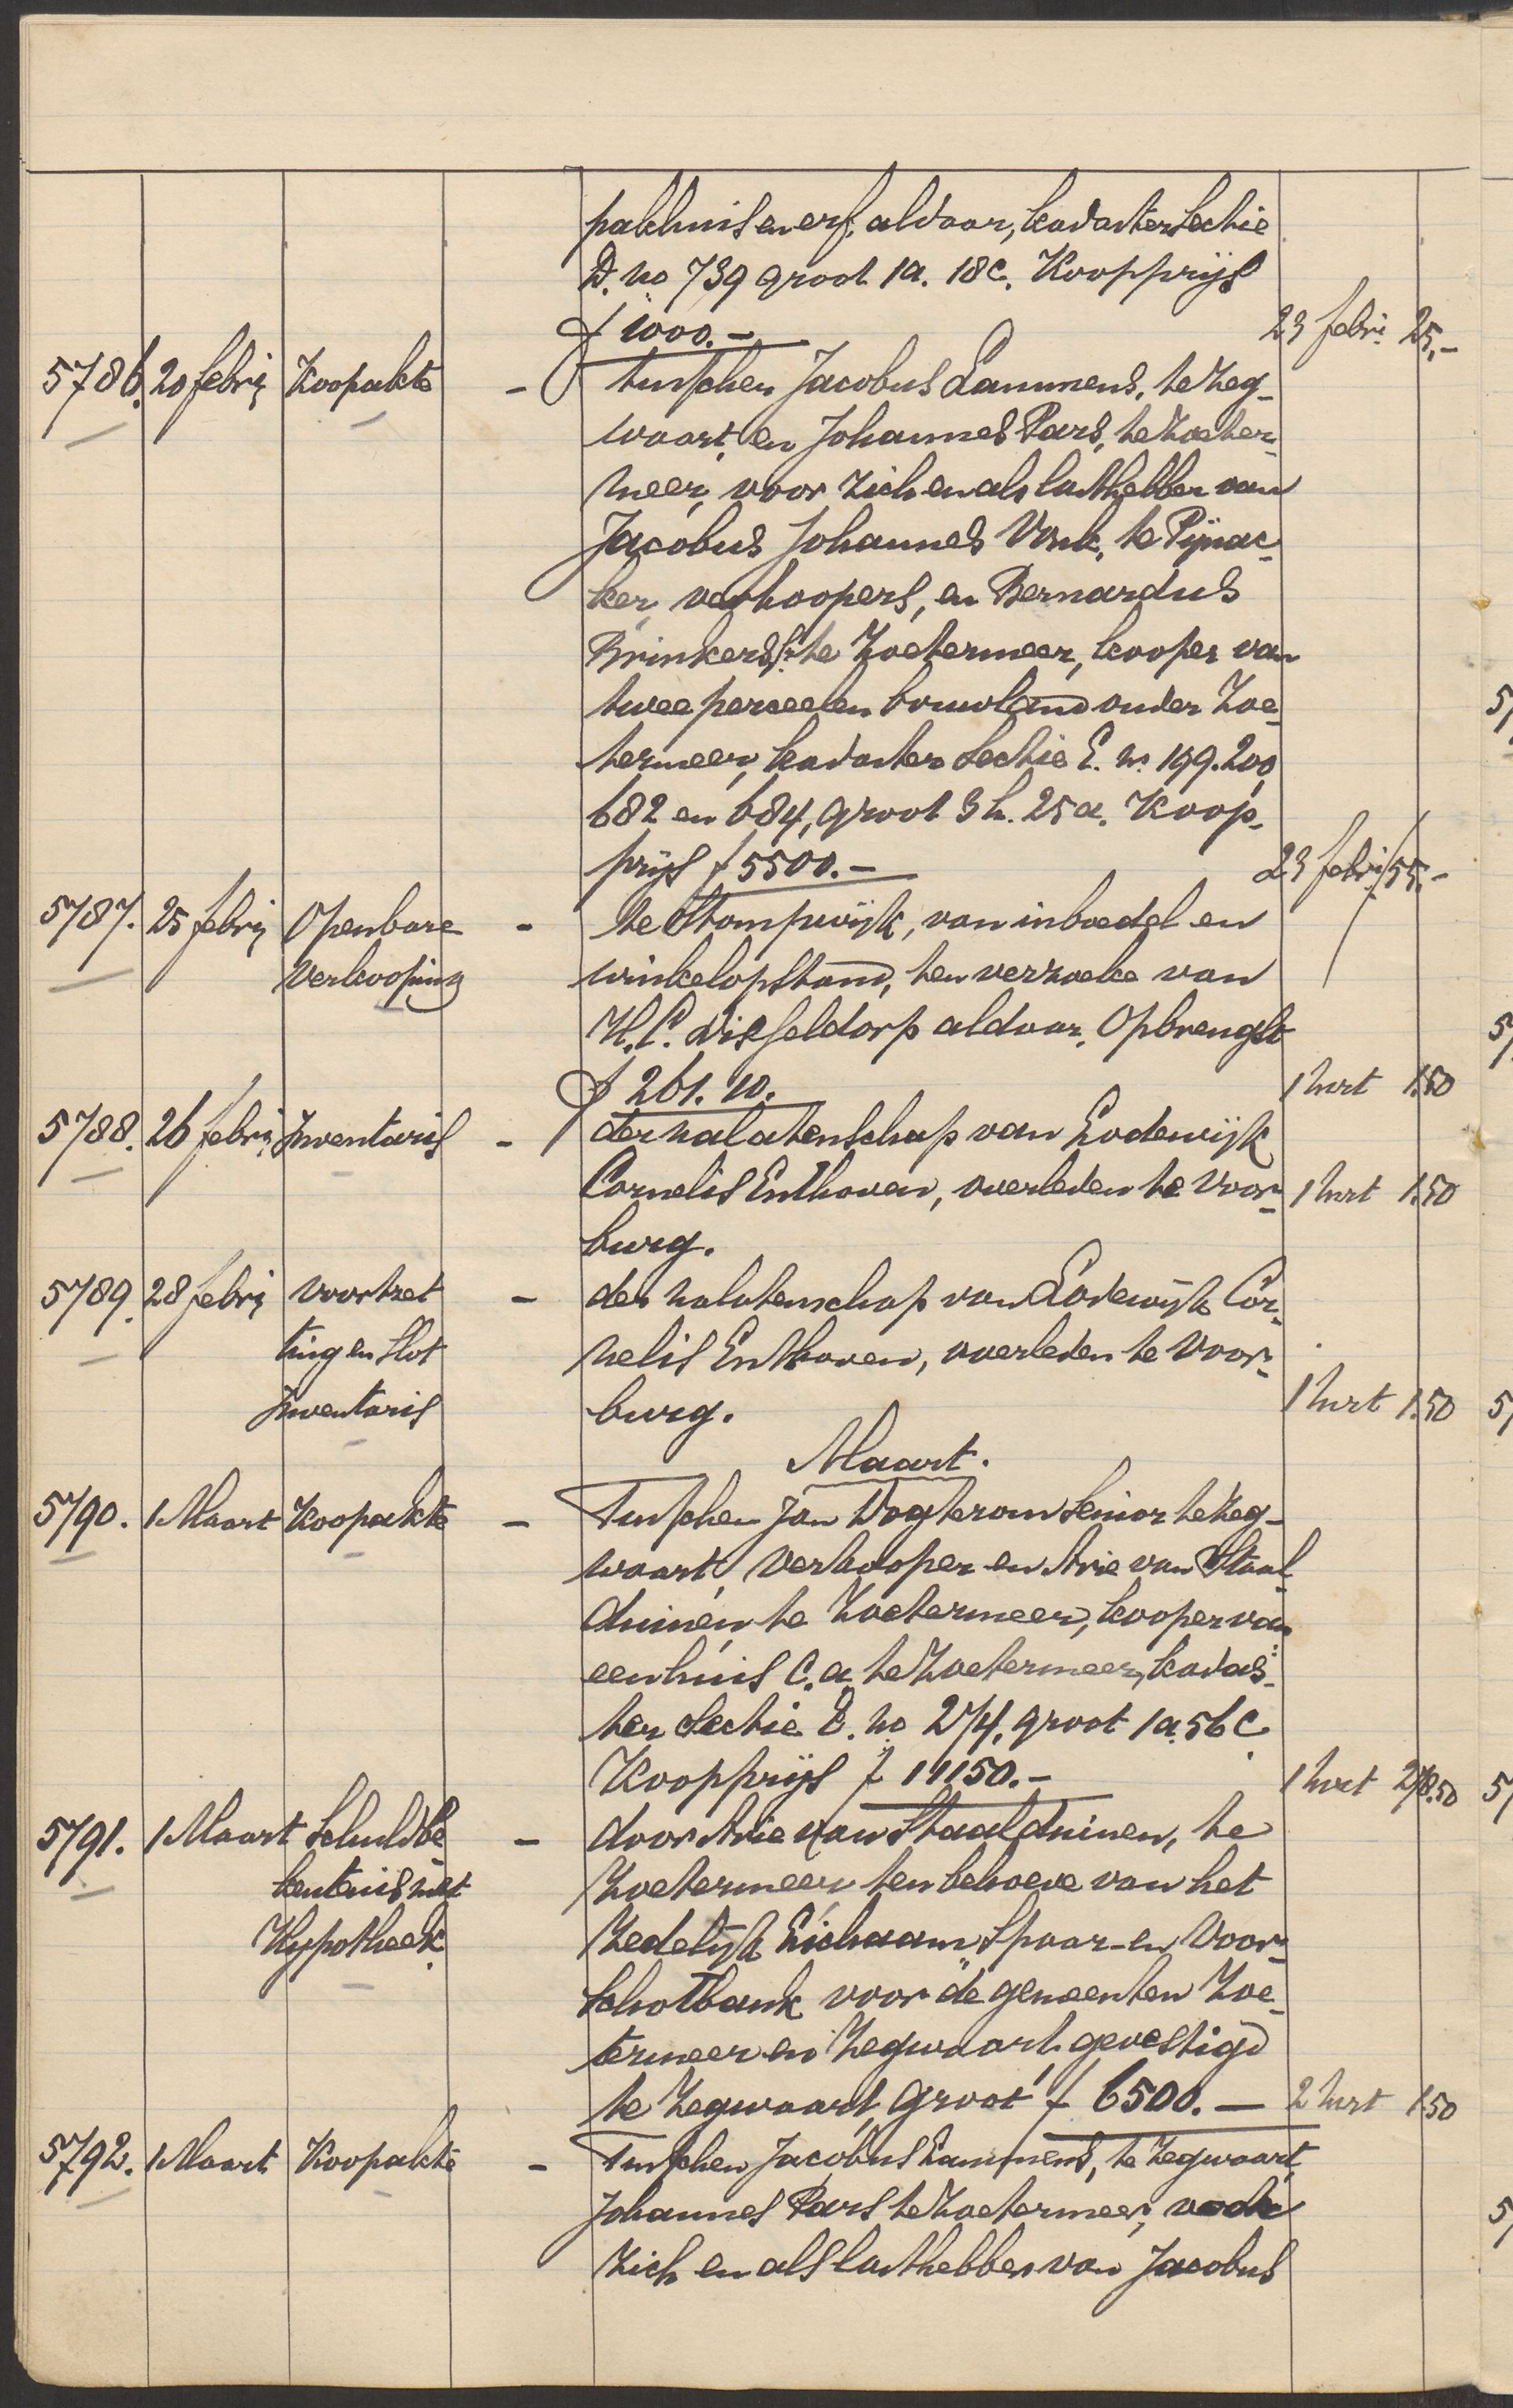 pakhuis en erf, aldaar, kadaster Sectie
D. no 739 groot 1a. 18c. Koopprijs
f 1000.- 23 febri 25,-
5786. 20 febrij Koopakte - tusschen Jacobus Lammens, te Zeg-
waart, en Johannes Pars, te Zoeter-
meer, voor zich en als lasthebber van
Jacobus Johannes Vonk, te Pijnac-
ker, verkoopers, en Bernardus
Brinkers, te Zoetermeer, kooper van
twee perceelen bouwland onder Zoe-
termeer, kadaster Sectie E. no 199. 200
682 en 684, groot 3 h. 25 a. Koop-
prijs f 5500.- 23 febri 55.-
5787. 25 febrij Openbare - te Stompwijk, van inboedel en
Verkooping winkelopstand, ten verzoeke van
H.C. Disseldorp aldaar. Opbrengst
f 261.10. 1 mrt 1.50
5788. 26 febri Inventaris - der nalatenschap van Lodewijk
Cornelis Enthoven, overleden te Voor- 1 mrt 1.50
burg.
5789. 28 febrij voortzet - der nalatenschap van Lodewijk Cor-
ting en Slot nelis Enthoven, overleden te Voor-
Inventaris burg. 1 mrt 1.50
Maart.
5790. 1 Maart Koopakte - Tusschen Jan Vogterom Senior te Zeg-
waart, verkooper en Arie van Staal-
duinen, te Zoetermeer, kooper van
een huis c.a. te Zoetermeer, kadas-
ter Sectie E. no 274, groot 1a. 56c.
Koopprijs f 11150.- 1 mrt 278.50
5791. 1 Maart Schuldbe - door Arie van Staalduinen, te
kentenis met Zoetermeer, ten behoeve van het
Hypotheek. Zedelijk Lichaam "Spaar- en Voor-
schotbank voor de gemeenten Zoe-
termeer en Zegwaart, gevestigd
te Zegwaart, groot f 6500.- 2 mrt 1.50
5792. 1 Maart Koopakte - Tusschen Jacobus Lammens, te Zegwaart,
Johannes Pars te Zoetermeer, voor
zich en als lasthebber van Jacobus